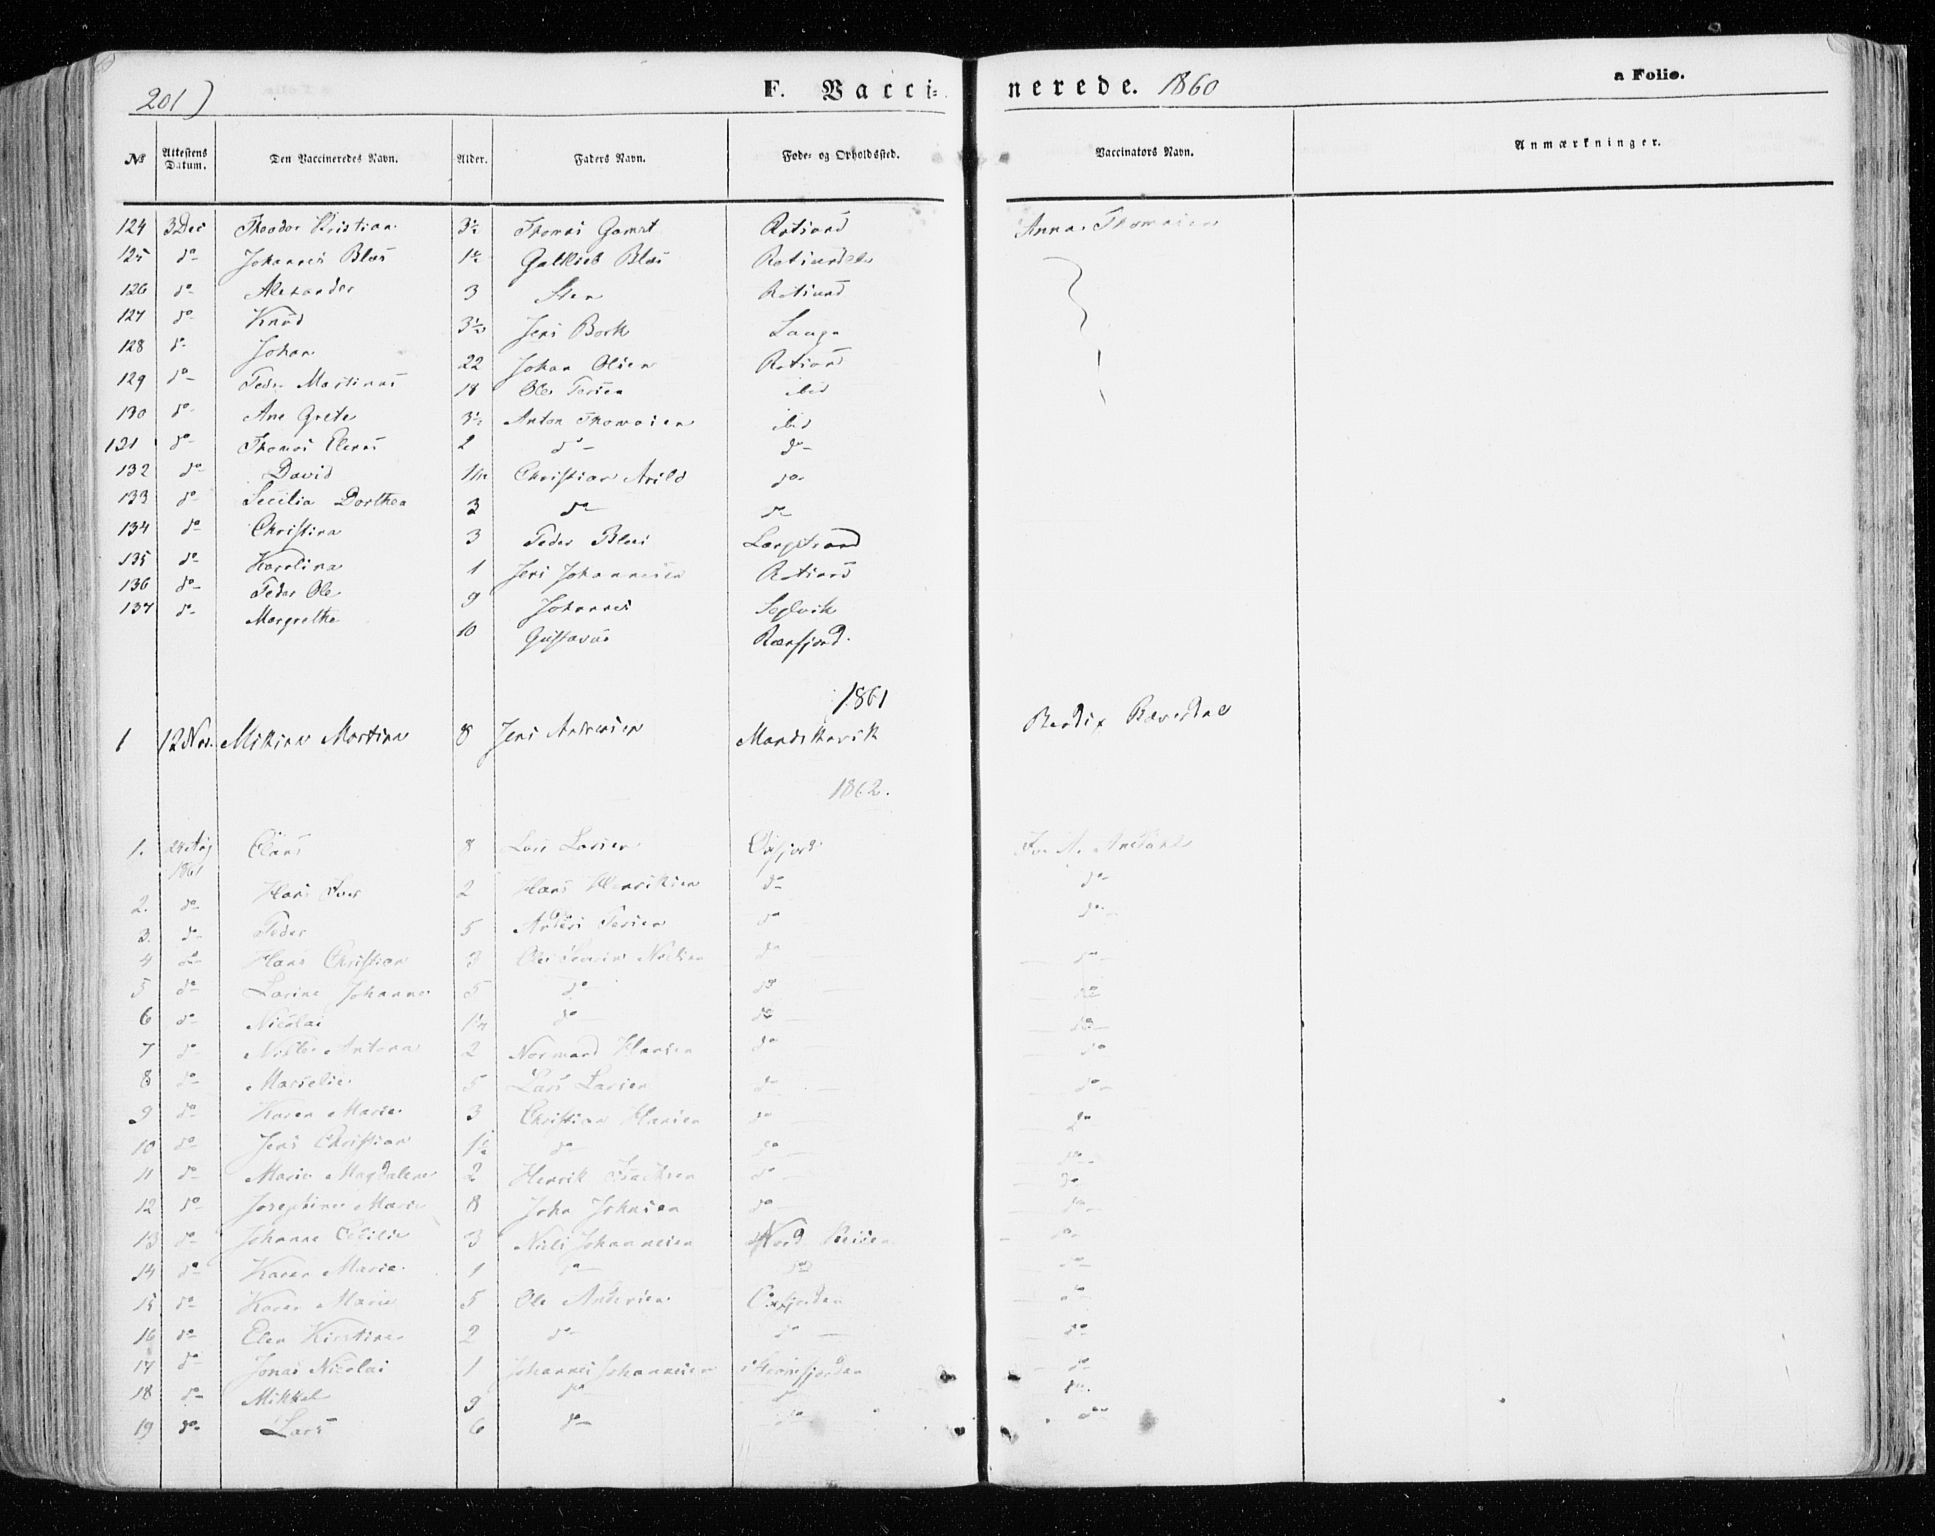 201)
F. Vacci=nerede. 1860
a Folio.
№ Attestens Datum. Den Vaccineredes Navn. Alder. Faders Navn. Føde- og Opholdssted. Vaccinators Navn. Anmærkninger.
124 3 Dec Theodor Kristian 3½ Thomas Gamst Rotsund Anna Thomasen
125 do Johannes Blæs 1½ Gottlieb Blæs
126 do Alexander 3 Sten Rotsund
127 do Knud 3½ Jens Bork
128 do Johan 22 Johan Olsen Rotsund
129 do Peder Martinus 18 Ole Persen ibid
130 do Ane Grete 3½ Anton Thomasen ibid
131 do Thomas 2 do do
132 do David Christian Arild do
133 do Secilia Dorthea 3 do do
134 do Christina 3 Peder Blæs Langstrand
135 do Karolina 1 Jens Johannesen Rotsund
136 do Peder Ole 9 Johannes Seglvik
137 do Margrethe 10 Gustavus
1861
1 12 Martine 8 Jens Andersen
1862.
1. 24 Aug 1861 8 Lars Larsen Oxfjord
2. do Hans Iver 2 Hans Henriksen do do
3. do Peder 5 Anders Persen do do
4 do Hans Christian 3 do do
5 do Larine Johanne 5 do do do
6 do Nicolai 1½ do do do
7 do Antona 2 Normand Hansen do do
8 do 5 Lars Larsen do do
9 do Karen Marie 3 Christian Hansen do do
10 do Jens Christian 1½ do do do
11 do Marie Magdalene 2 Henrik Isaksen do do
12 do Josephine Marie 8 John Johnsen do do
13 do Johanne Cecilie 3 Nils Johannesen Nord Reisen do
14 do Karen Marie 1 do do do
15 do Karen Marie 5 Ole Andersen Oxfjorden do
16 do Elen Kirstine 2 do do do
17 do Jonas Nicolai 1 Johannes Johannesen do
18 do Mikkel 9 do do do
19 do Lars 6 do do do